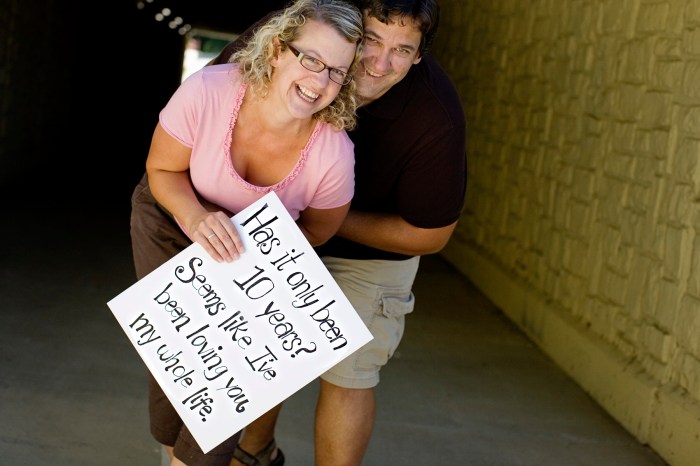 Has it only been
10 years?
Seems like I've
been loving you
my whole life.